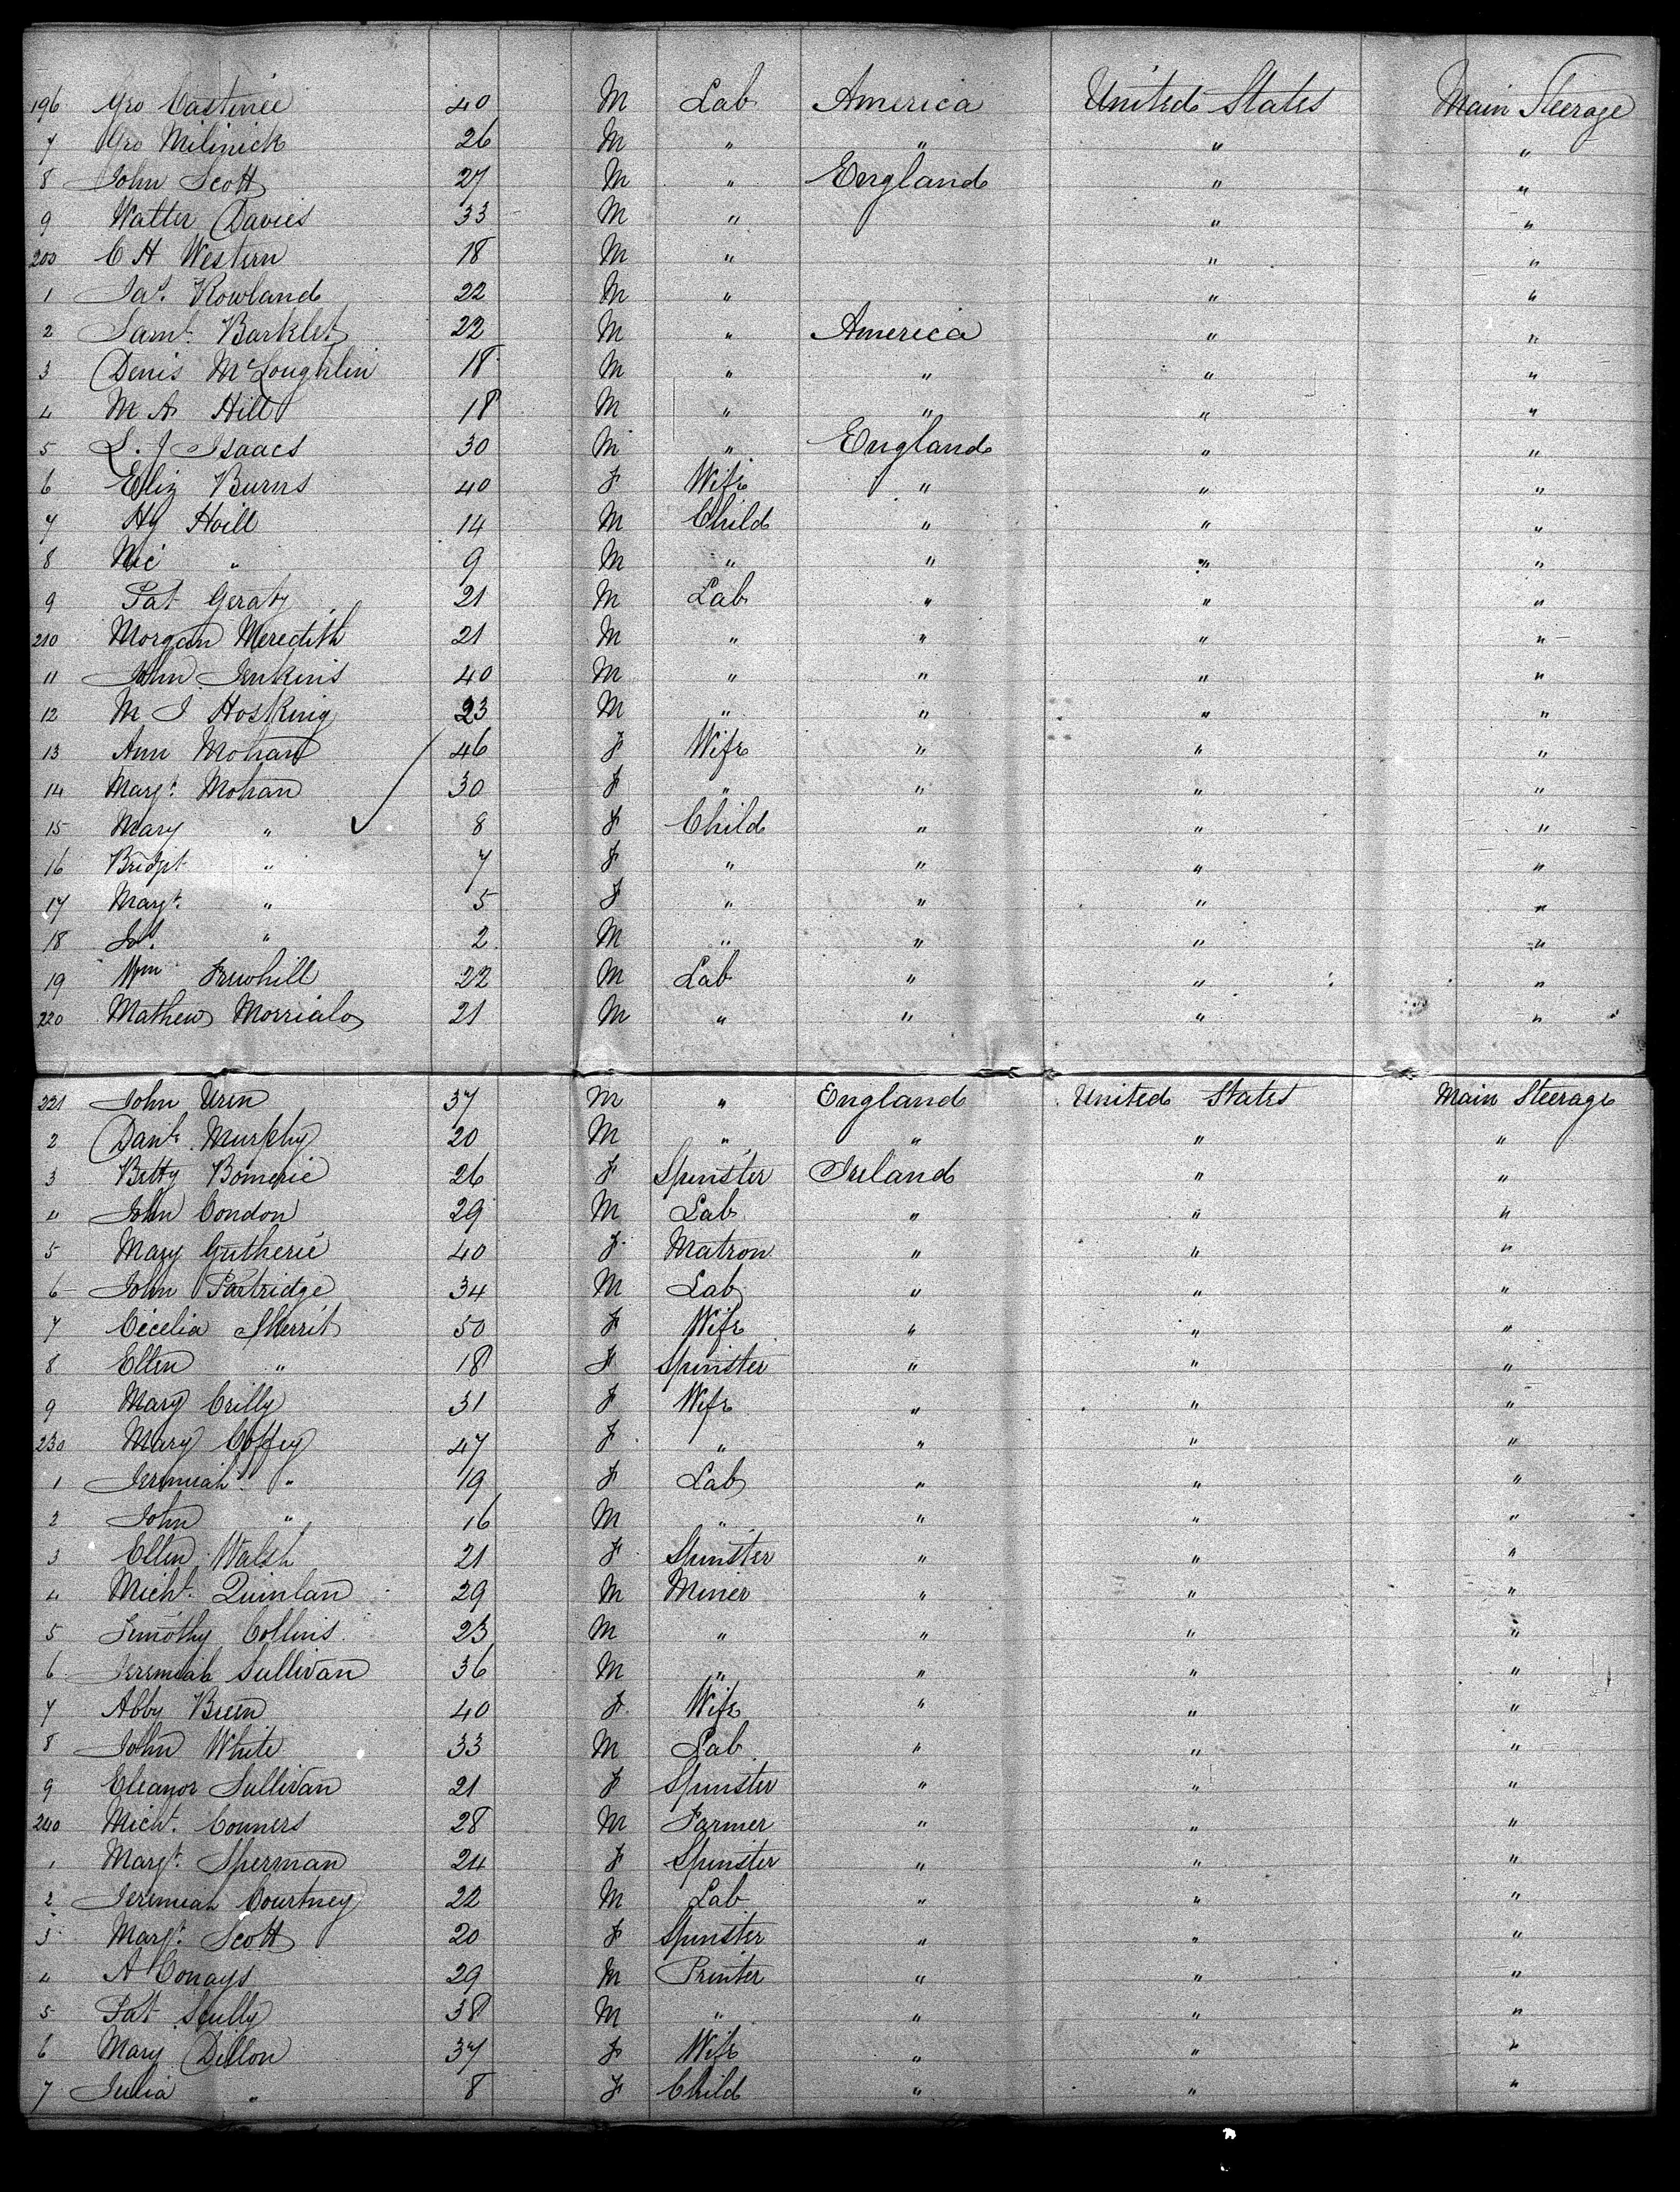 196 Geo Castinée 40 M Lab America United States Main Steerage
7 Geo Milinick 26 M " " " "
8 John Scott 27 M " England " "
9 Walter Davies 33 M " " "
200 C H Western 18 M " " "
1 Jas. Rowland 22 M " " "
2 Saml. Barklet 22 M " America " "
3 Denis McLoughlin 18 M " " " "
4 M A Hill 18 M " " " "
5 S. J Isaacs 30 M " England " "
6 Eliz Burns 40 F Wife " " "
7 Hy Hoill 14 M Child " " "
8 Nic " 9 M " " " "
9 Pat Geraty 21 M Lab " " "
210 Morgan Meredith 21 M " " " "
11 John Jenkins 40 M " " " "
12 M J Hosking 23 M " " " "
13 Ann Mohan 46 F Wife " " "
14 Margt. Mohan 30 F " " " "
15 Mary " 8 F Child " " "
16 Bridgt " 7 F " " " "
17 Margt. " 5 F " " " "
18 " 2 M " " " "
19 Wm 22 M Lab " " "
220 Mathew Morriala 21 M " " " "
221 John Uren 37 M " England United States Main Steerage
2 Danl. Murphy 20 M " " " "
3 Betty Bomerie 26 F Spinster Ireland " "
4 John Condon 29 M Lab " " "
5 Mary Gutherie 40 F Matron " " "
6 John Partridge 34 M Lab " " "
7 Cecelia Sherrit 50 F Wife " " "
8 Ellen " 18 F Spinster " " "
9 Mary Crilly 31 F Wife " " "
230 Mary Coffey 47 F " " " "
1 Jeremiah " 19 F Lab " " "
2 John " 16 M " " " "
3 Ellen Walsh 21 F Spinster " " "
4 Michl. Quinlan 29 M Miner " " "
5 Timothy Collins 23 M " " " "
6 Jeremiah Sullivan 36 M " " " "
7 Abby Breen 40 F Wife " " "
8 John White 33 M Lab " " "
9 Eleanor Sullivan 21 F Spinster " " "
240 Michl. Conners 28 M Farmer " " "
1 Margt. Sherman 24 F Spinster " " "
2 Jeremiah Courtney 22 M Lab " " "
3 Margt. Scott 20 F Spinster " " "
4 A Conays 29 M Printer " " "
5 Pat Scully 38 M " " " "
6 Mary Dillon 37 F Wife " " "
7 Julia " 8 F Child " " "